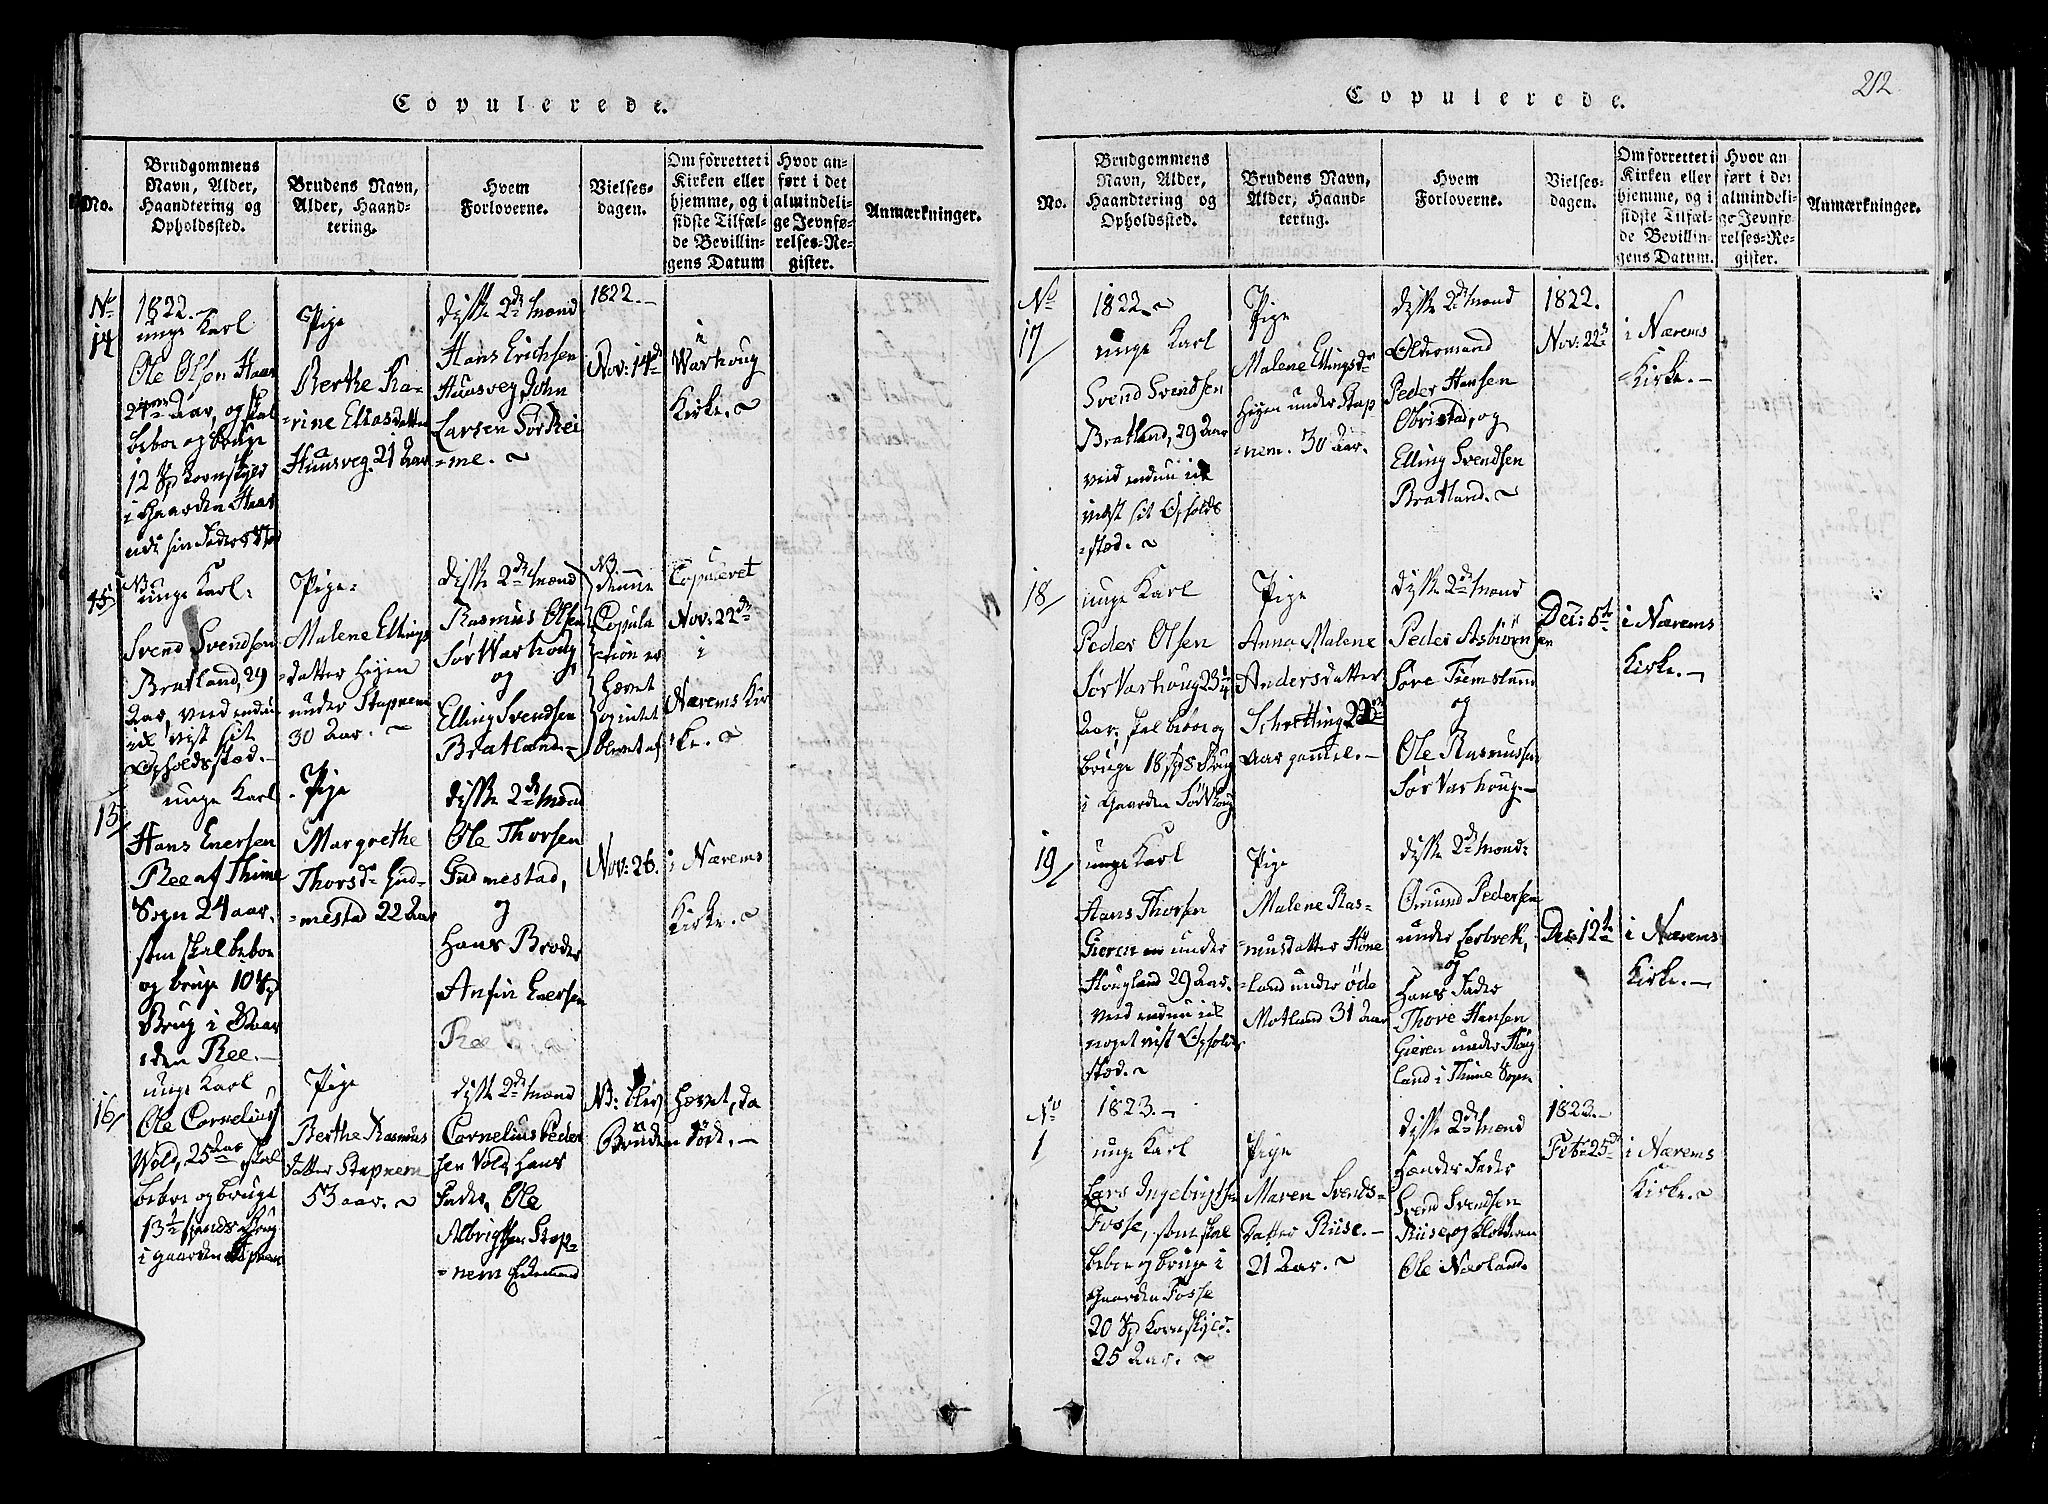 Copulerede.
No.
Brudgommens
Navn, Alder,
Haandtering og
Opholdssted.
Brudens Navn,
Alder, Haand-
tering.
Hvem
Forloverne.
Vielses-
dagen.
Om forrettet i
Kirken eller
hjemme, og i
sidste Tilfæl-
de Bevillin-
gens Datum
Hvor an-
ført i det
almindeli-
ge Jevnfø-
relses-Re-
gister.
Anmærkninger.
No
14
1822.
unge Karl
Ole Olsen Haar
24 Aar, og skal
beboe og bruge
12 Sp Kornskyld
i Gaarden Haar
Pige
Berthe Ka-
=rine Eliasdatter
Huusveg. 21 Aar
disse 2de Mænd
Hans Erichsen
Huusveg, John
Larsen Sør Rei
=me.
1822.
Nov: 14de
i
Warhoug
Kirke.
15
NB
unge Karl:
Svend Svendsen
Bratland, 29
Aar, veed endnu
ik vist sit
Opholdssted.
Pige:
Malene Ellings
=datter Hejen
under Stapnem
30 Aar.
disse 2de Mænd
Rasmus Olsen
Sør Warhoug
og
Elling Svendsen
Bratland.
NB
denne
Copula
=tion er
hævet
og intet
blevet af
Copuleret
Nov: 22de
i
Nærems Kir
ke.
15
unge Karl
Hans Enersen
Ree af Thime
Sogn 24 aar.
som skal beboe
og bruge 10 Sp
Brug i Gaar
=den Ree.
Pige
Margrethe
Thorsd. Gud-
=mestad 22 Aar
disse 2de Mænd
Ole Thorsen
Gudmestad,
og
hans Broder
Anfin Enersen
Ree
Nov: 26.
i Nærems
Kirke.
16
unge Karl
Ole Cornelius
Wold, 25 Aar, skal
beboe og bruge
13½ Spands Brug
i gaarden Stapnem
Pige
Berthe Rasmus
datter Stapnem
53 aar.
disse 2de Mænd
Cornelius Peder
sen Vold, hans
Fader, Ole
Albrigtsen Stap-
=nem
NB: blev hævet, da
Bruden døde.
Copulerede.
212
No.
Brudgommens
Navn, Alder,
Haandtering og
Opholdssted.
Brudens Navn,
Alder, Haand-
tering.
Hvem
Forloverne.
Vielses-
dagen.
Om forrettet i
Kirken eller
hjemme, og i
sidste Tilfæl-
de Bevillin-
gens Datum.
Hvor an
ført i det
almindeli-
ge Jevnfø-
relses-Re-
gister.
Anmærkninger.
No
17
1822.
unge Karl
Svend Svendsen
Bratland, 29 Aar
veed endnu ik
vist sit Opholds
=sted.
Pige
Malene Ellingsdr
Hejen under Stap
=nem. 30 Aar.
disse 2de Mænd
Oldermand
Peder Hansen
Obristad, og
Elling Svendsen
Bratland.
1822.
Nov: 22de
i Nærems
=Kirke.
18
unge Karl
Peder Olsen
Sør Varhoug 23¼
Aar, skal beboe og
bruge 18 Sps Brug
i Gaarden Sør V.houg
Pige
Anna Malene
Andersdatter
Schretting 22
Aar gammel.
disse 2de Mænd
Peder Asbiörnsen
Söre Tiemsland
og
Ole Rasmussen
Sør Varhoug.
Dec: 5te
i Nærems
Kirke.
19
unge Karl
Hans Thorsen
Gieren under
Hougland 29 Aar.
veed endnu ik
noget vist Opholds
sted.
Pige
Malene Ras-
=musdatter Höne
=land under öde
Motland 31 Aar
disse 2de Mænd:
Omund Pedersen
under Lerbrek,
og
hans Fader
Thore Hansen
Gieren under Houg
land i Thime Sogn
Dec: 12te
i Nærems
Kirke.
No
1
1823.
unge Karl
Lars Ingebrigtsen
Fosse, som skal
beboe og bruge i
Gaarden Fosse
20 Sp Kornskyld.
25 Aar.
Pige
Maren Svends-
datter Riise.
21 Aar.
disse 2de Mænd
hendes Fader
Svend Svendsen
Riise, og Klokkeren
Ole Nærland.
1823.
Feb: 25de
i Nærems
Kirke.